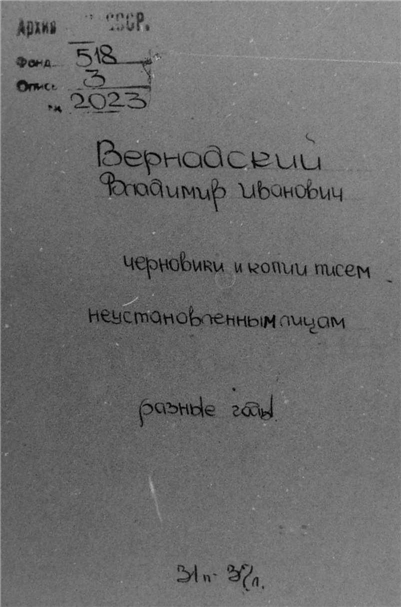 Архив СССР.
Фонд 518
Опись 3
№ 2023
Вернадский
Владимир Иванович
черновики и копии писем
неустановленным лицам
разные годы
31 п. 32 л.